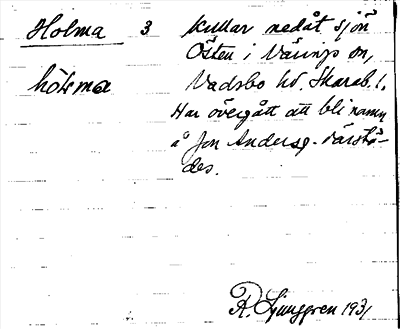 Holma 3 Kullar nedåt sjön
Östen i Värings sn,
hòlma Vadsbo hd. Skarab. l.
Har övergått att bli namn
å Jon Anders
des.
R. Ljunggren 1931